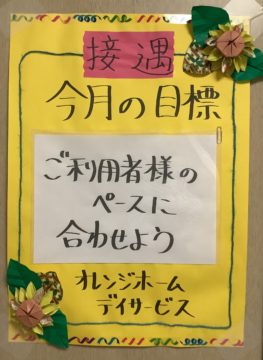 接遇
今月の目標
ご利用者様の
ペースに
合わせよう
オレンジホーム
デイサービス